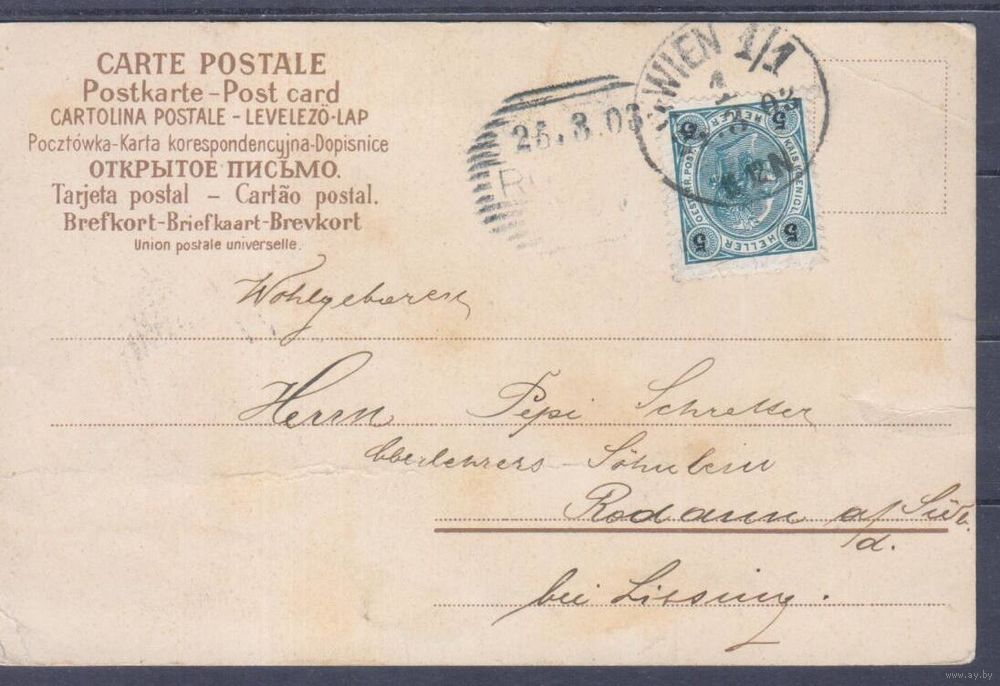 CARTE POSTALE
Postkarte – Post card
CARTOLINA POSTALE – LEVELEZŐ-LAP
Pocztówka-Karta korespondencyjna-Dopisnice
ОТКРЫТОЕ ПИСЬМО.
Tarjeta postal – Cartão postal.
Brefkort-Briefkaart-Brevkort
Union postale universelle.
26.3.03
WIEN 1/1
5 HELLER 5
KAIS. KOENIGL.
OESTERR. POST.
5 HELLER 5
Wohlgeboren
Herrn Pepi Schretter
Oberlehrers-Söhnlein
Rodaun a/ Südb.
d.
bei Liesing.
www.ay.by